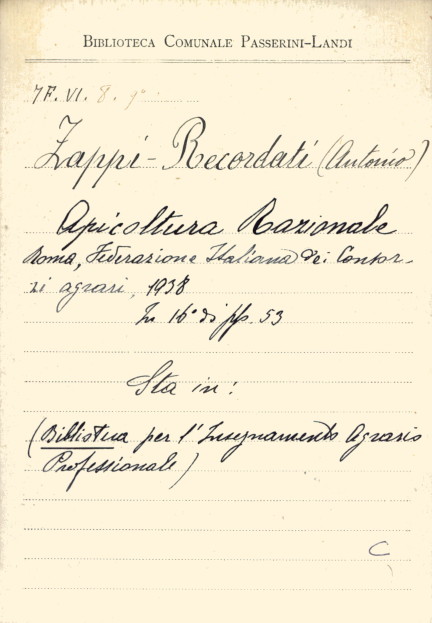 BIBLIOTECA COMUNALE PASSERINI-LANDI
7F. VI. 8. 9°
Zappi-Recordati (Antonio)
Apicoltura Razionale
Roma, Federazione Italiana dei Consor-
zi agrari, 1938
In 16° di pp. 53
Sta in:
(Biblioteca per l'Insegnamento Agrario
Professionale)
C